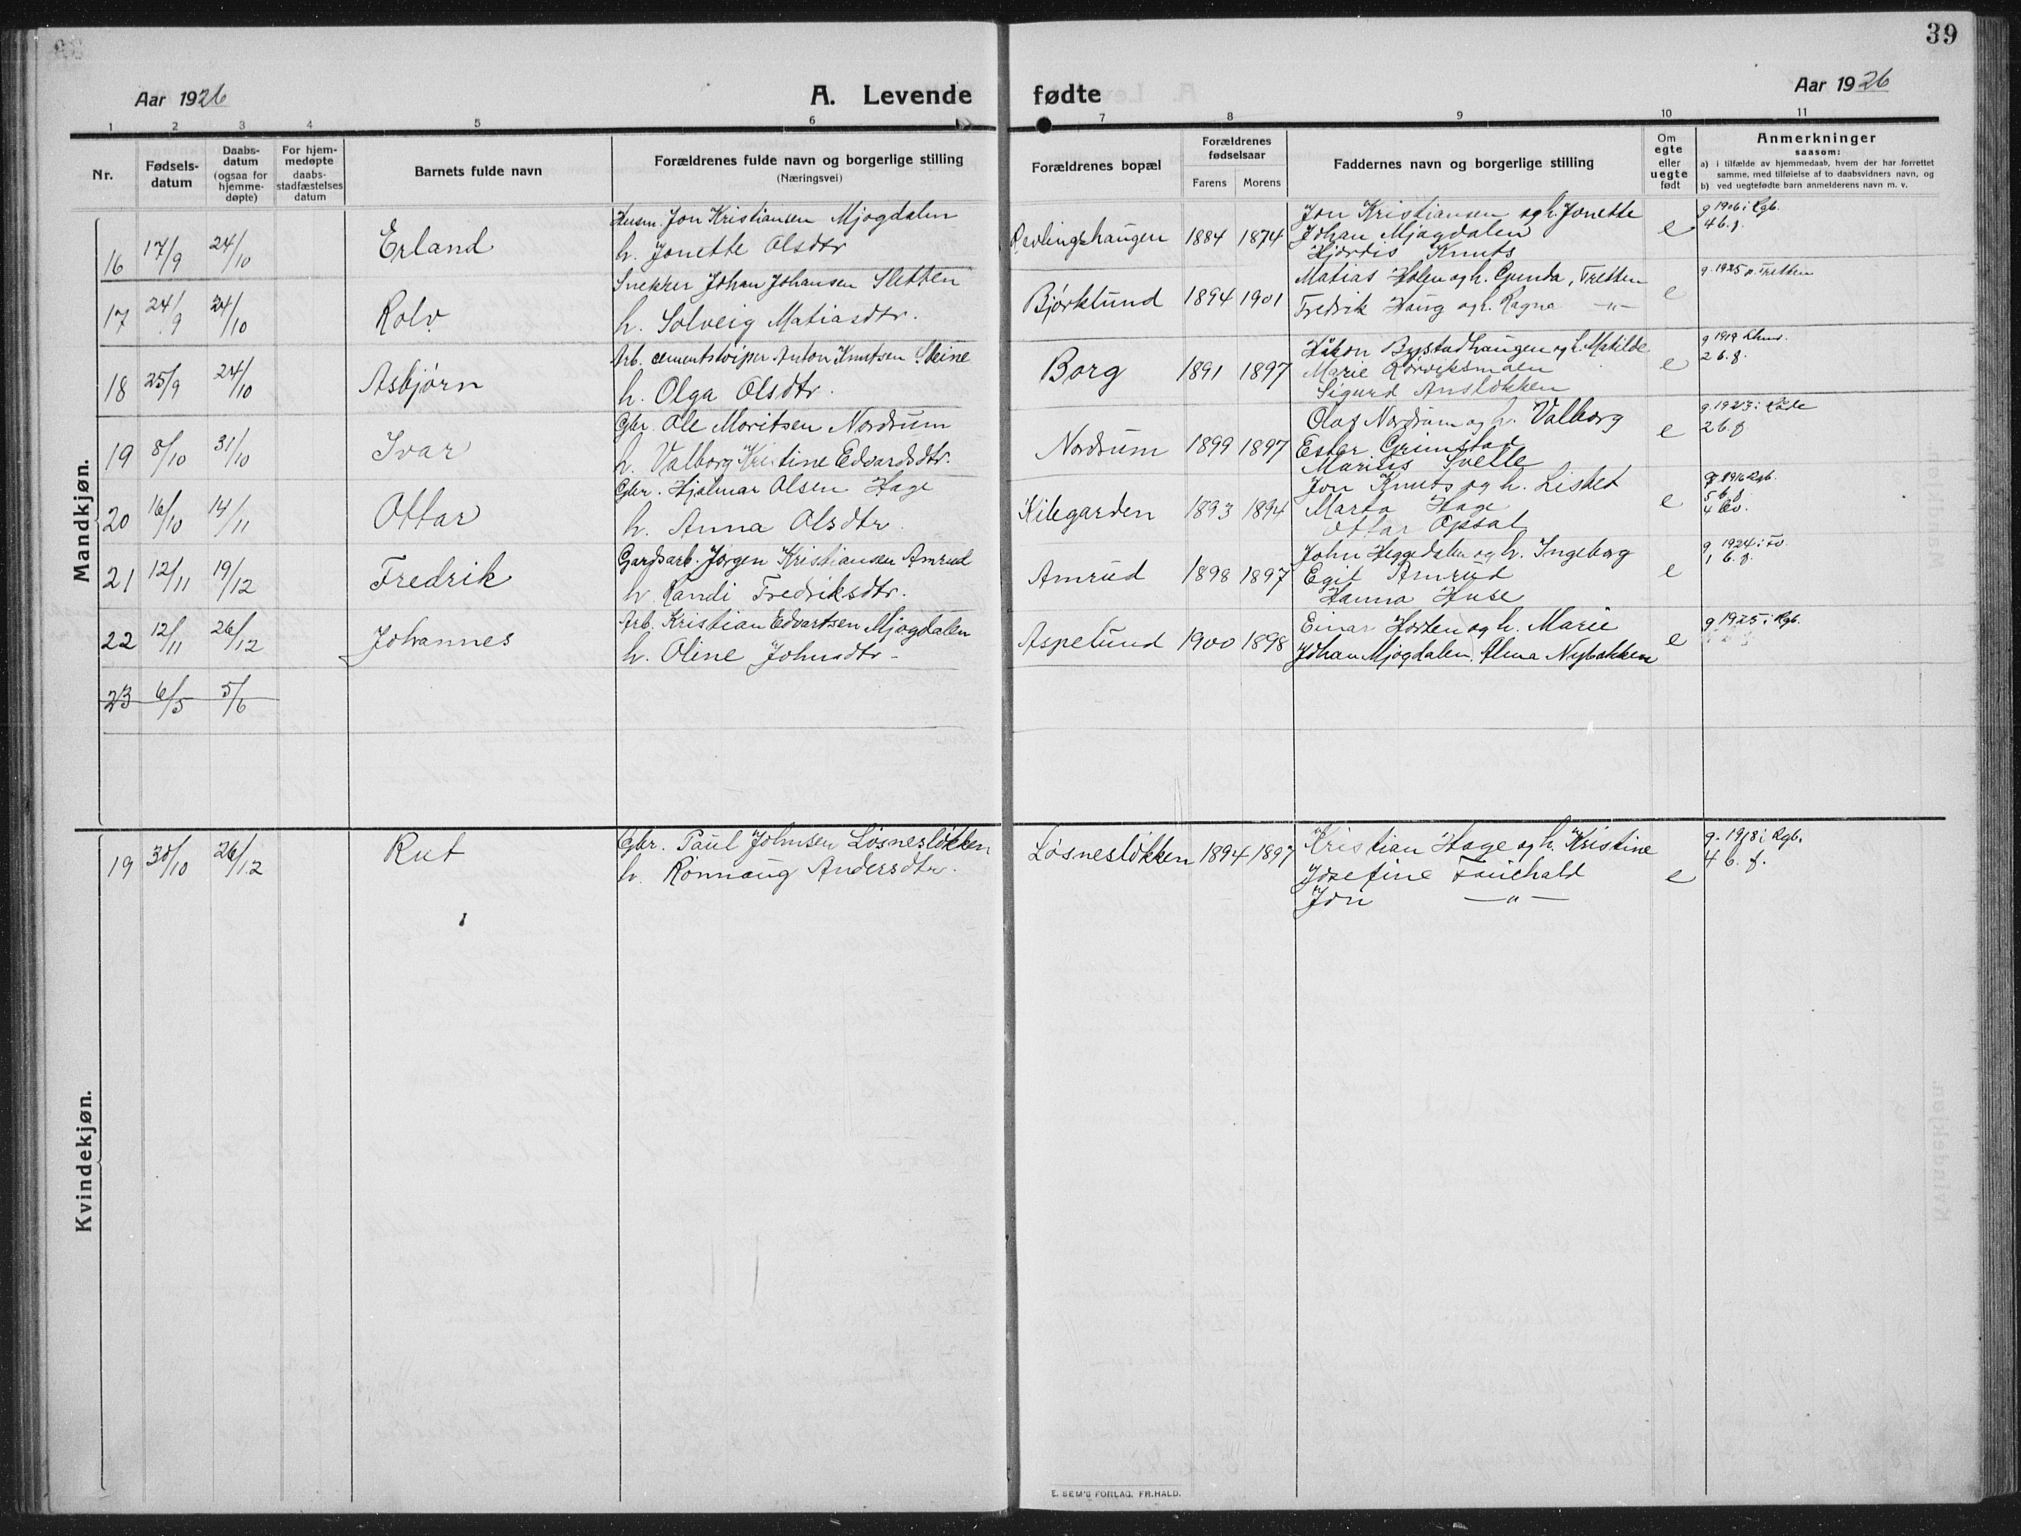 39
Aar 1926
A. Levende
fødte
Aar 1926
1 2 3 4 5 6 7 8 9 10 11
Nr.
Fødsels-
datum
Daabs-
datum
(ogsaa for
hjemme-
døpte)
For hjem-
medøpte
daabs-
stadfæstelses
datum
Barnets fulde navn
Forældrenes fulde navn og borgerlige stilling
(Næringsvei)
Forældrenes bopæl
Forældrenes
fødselsaar
Farens Morens
Faddernes navn og borgerlige stilling
Om
egte
eller
uegte
født
Anmerkninger
saasom:
a) i tilfælde av hjemmedaab, hvem der har forrettet
samme, med tilføielse af to daabsvidners navn, og
b) ved uegtefødte barn anmelderens navn m. v.
Mandkjøn.
Husm. Jon Kristiansen Mjogdalen
16 17/9 24/10 Erland h. Jonette Olsdtr Revlingshaugen 1884 1874
Jon Kristiansen og h. Jonette
Johan Mjogdalen
Hjørdis Knuts
e g 1906 i Rgb.
4 b. f.
Snekker Johan Johansen Sletten
17 24/9 24/10 Rolv h. Solveig Matiasdtr. Bjørklund 1894 1901
Matias Holen og h. Gunda, Tretten
Fredrik Haug og h. Ragna —"—
e g. 1925 p. Tretten
Arb. cementstøiper Anton Knutsen Steine
18 25/9 24/10 Asbjørn h. Olga Olsdtr. Borg 1891 1897
Håkon Bystadhaugen og h. Matilde
Marie Rørviksmoen
Sigurd Ansløkken
e g 1919
2 b. f.
Gbr. Ole Moritsen Nordrum
19 8/10 31/10 Ivar h. Valborg Kristine Edvardsdtr. Nordrum 1899 1897
Olaf Nordrum og h. Valborg
Ester Grimstad
Marius Svelle
e g. 1923 i Råde
2 b. f.
Gbr. Hjalmar Olsen Hage
20 16/10 14/11 Ottar h. Anna Olsdtr. Kilegarden 1893 1894
Jon Knuts og h. Lisbet
Marta Hage
Ottar Opsal
e g. 1916 Rgb.
5 b. f.
Gardsarb. Jørgen Kristiansen Amrud
21 12/11 19/12 Fredrik h. Randi Fredriksdtr. Amrud 1898 1897
John Heggedalen og h. Ingeborg
Egil Amrud
Hanna Huse
e g. 1924 i
1 b. f.
Arb. Kristian Edvartsen Mjogdalen
22 12/11 26/12 Johannes h. Oline Johnsdtr Aspelund 1900 1898
Einar Horten og h. Marie
Johan Mjogdalen, Alma Nybakken
e g 1925 i Rgb.
23 6/5 5/6
Kvindekjøn.
Gbr. Paul Johnsen Losnesløkken
19 30/10 26/12 Rut h. Rønnaug Andersdtr. Losnesløkken 1894 1897
Kristian Hage og h. Kristine
Josefine Fauchald
Jon —"—
e g. 1918 i Rgb.
4 b. f.
Mandkjøn.
Kvindekjøn.
E. SEM'S FORLAG. FR.HALD.